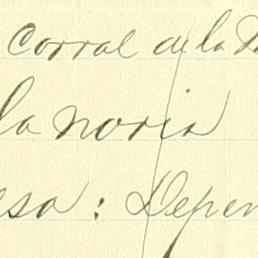 Corral de la
la noria
esa: Depen